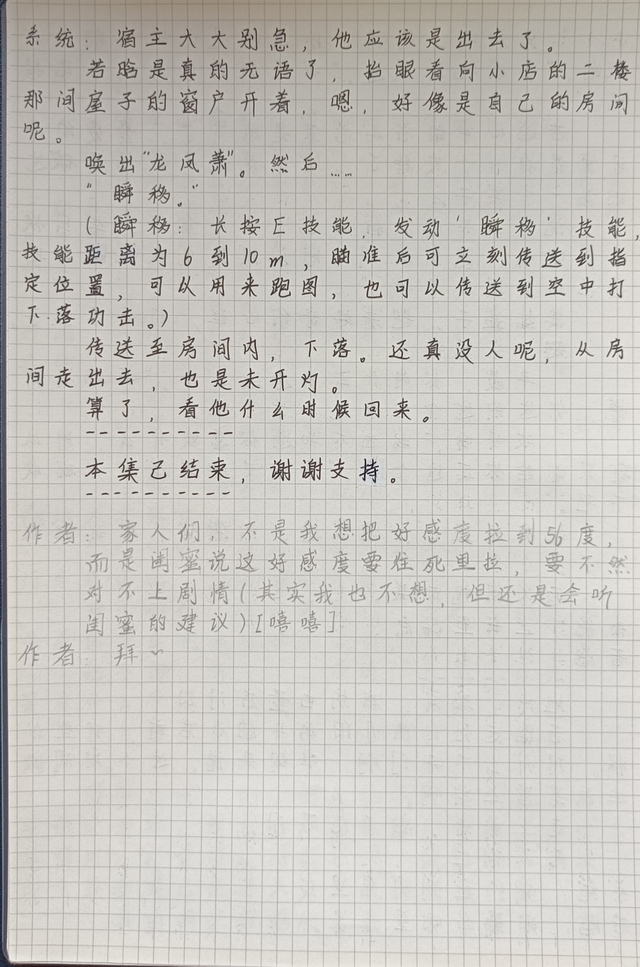 系统：宿主大大别急，他应该是出去了。
若晗是真的无语了，抬眼看向小店的二楼
那间屋子的窗户开着，嗯，好像是自己的房间
呢。
唤出“龙凤萧”。然后……
“瞬移。”
（瞬移：长按E技能，发动‘瞬移’技能，
技能距离为6到10m，瞄准后可立刻传送到指
定位置，可以用来跑图，也可以传送到空中打
下落功击。）
传送至房间内，下落。还真没人呢，从房
间走出去，也是未开灼。
算了，看他什么时候回来。
---------
本集已结束，谢谢支持。
---------
作者：家人们，不是我想把好感度拉到56度，
而是闺蜜说这好感度要往死里拉，要不然
对不上剧情（其实我也不想，但还是会听
闺蜜的建议）[嘻嘻]
作者：拜~